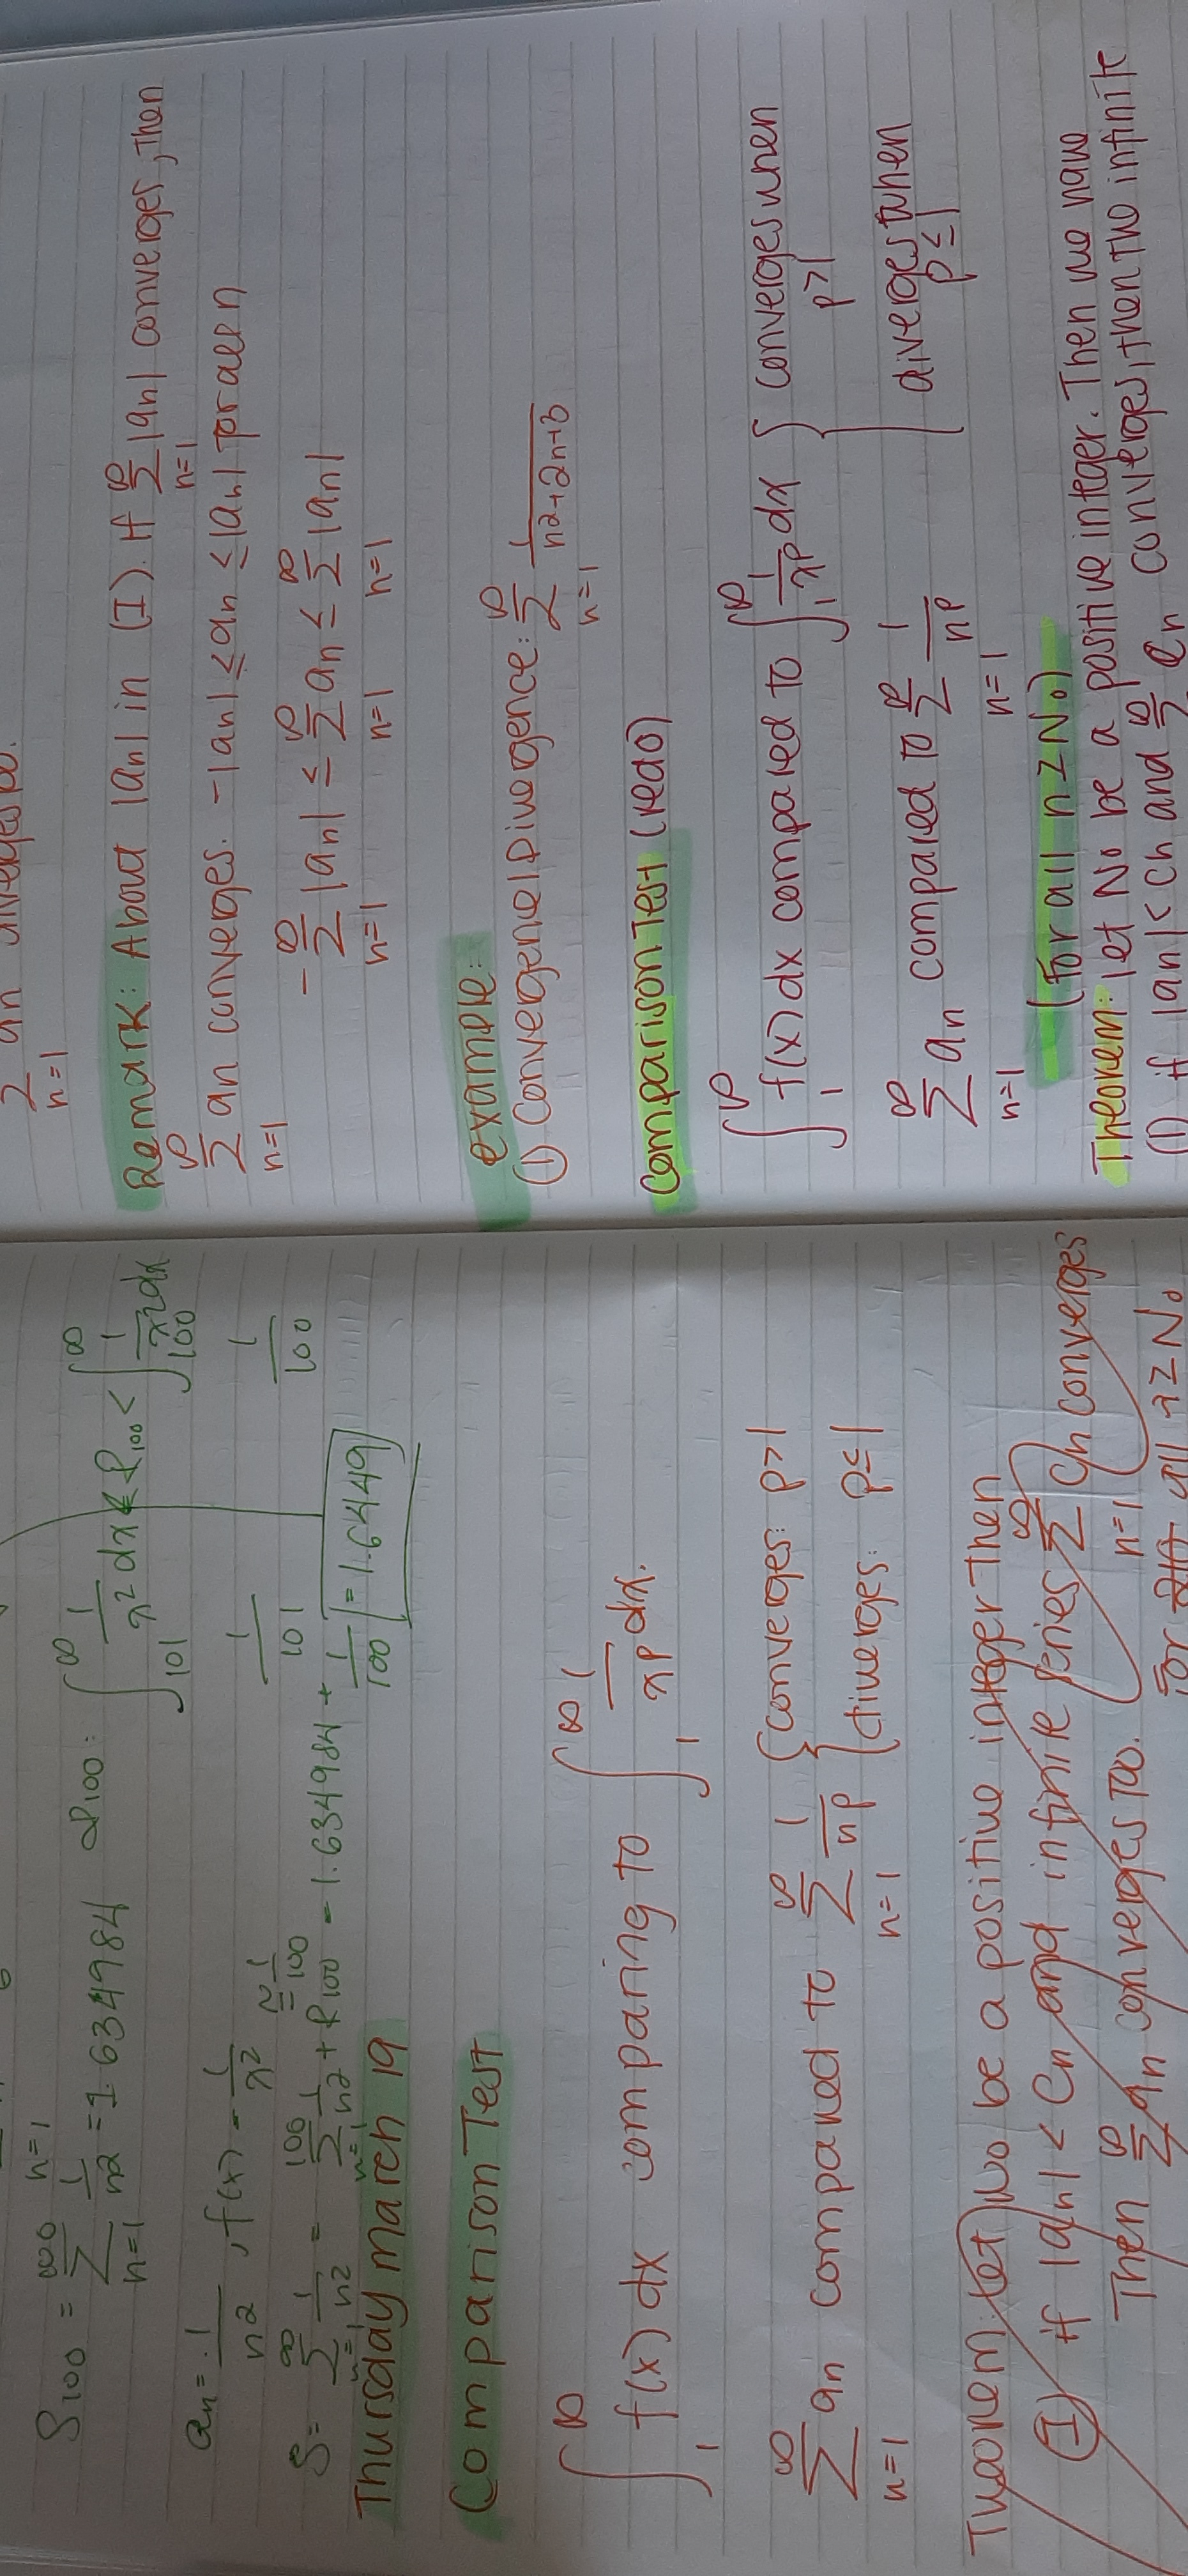 n=1
S100 = ∞00 Σ n=1 1/n2 = 1.634984 R100: ∫101^∞ 1/x2 dx < R100 < ∫100^∞ 1/x2 dx
an = 1/n2 , f(x) - 1/x2 1/101 1/100
S = ∞ Σ n=1 1/n2 = 100 Σ n=1 1/n2 + R100 ≈ 1/100 = 1.634984 + 1/100 = 1.6449
Thursday march 19
Comparison Test
∫1^∞ f(x) dx comparing to ∫1^∞ 1/xp dx.
∞ Σ n=1 an compared to ∞ Σ n=1 1/np { converges: p>1
diverges: p≤1
Theorem: let No be a positive integer Then
(I) if |an| < Cn and infinite series ∞ Σ n=1 Cn converges
Then ∞ Σ an converges too. for all n≥No
Σ n=1 an
Remark: About |an| in (I). If ∞ Σ n=1 |an| converges, then
∞ Σ n=1 an converges. -|an| ≤ an ≤ |an| for all n
- ∞ Σ n=1 |an| ≤ ∞ Σ n=1 an ≤ ∞ Σ n=1 |an|
example:
(1) Convergene | Divergence: ∞ Σ n=1 1/n2+2n+3
Comparison Test (read)
∫1^∞ f(x) dx compared to ∫1^∞ 1/xp dx { converges when p>1
∞ Σ n=1 an compared to ∞ Σ n=1 1/np diverges when p≤1
(For all n≥No)
Theorem: let No be a positive integer. Then we have
(1) if |an| < Cn and ∞ Σ Cn converges, then the infinite